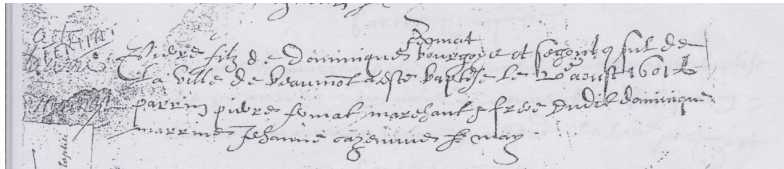 Fermat
Piere filz de Dominique bourgoix et segont 9sul de
la ville de beaumōt a este baptize le 20 aoust 1601
parrin piere fermat marchant & frere dudit dominique
marrine Jehanne cazenuue & moy